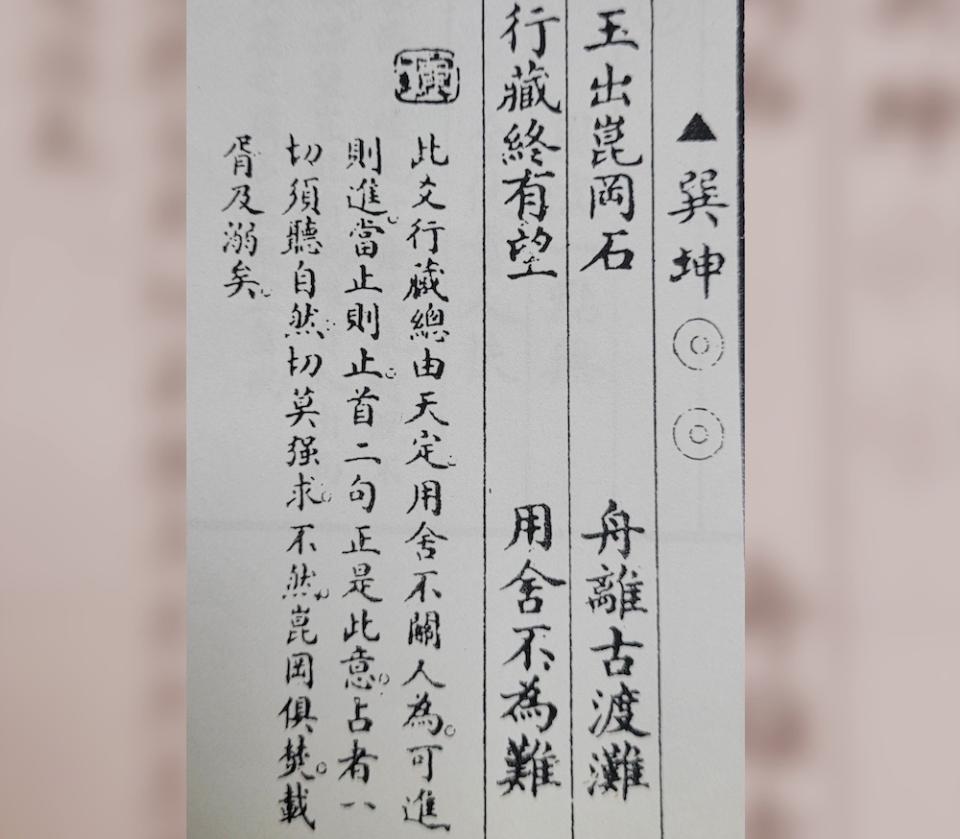 ▲巽坤◎◎
玉出崑岡石 舟離古渡灘
行藏終有望 用舍不為難
此爻行藏總由天定。用舍不關人為。可進
則進。當止則止。首二句正是此意。占者一
切須聽自然。切莫强求。不然。崑岡俱焚。載
胥及溺矣。